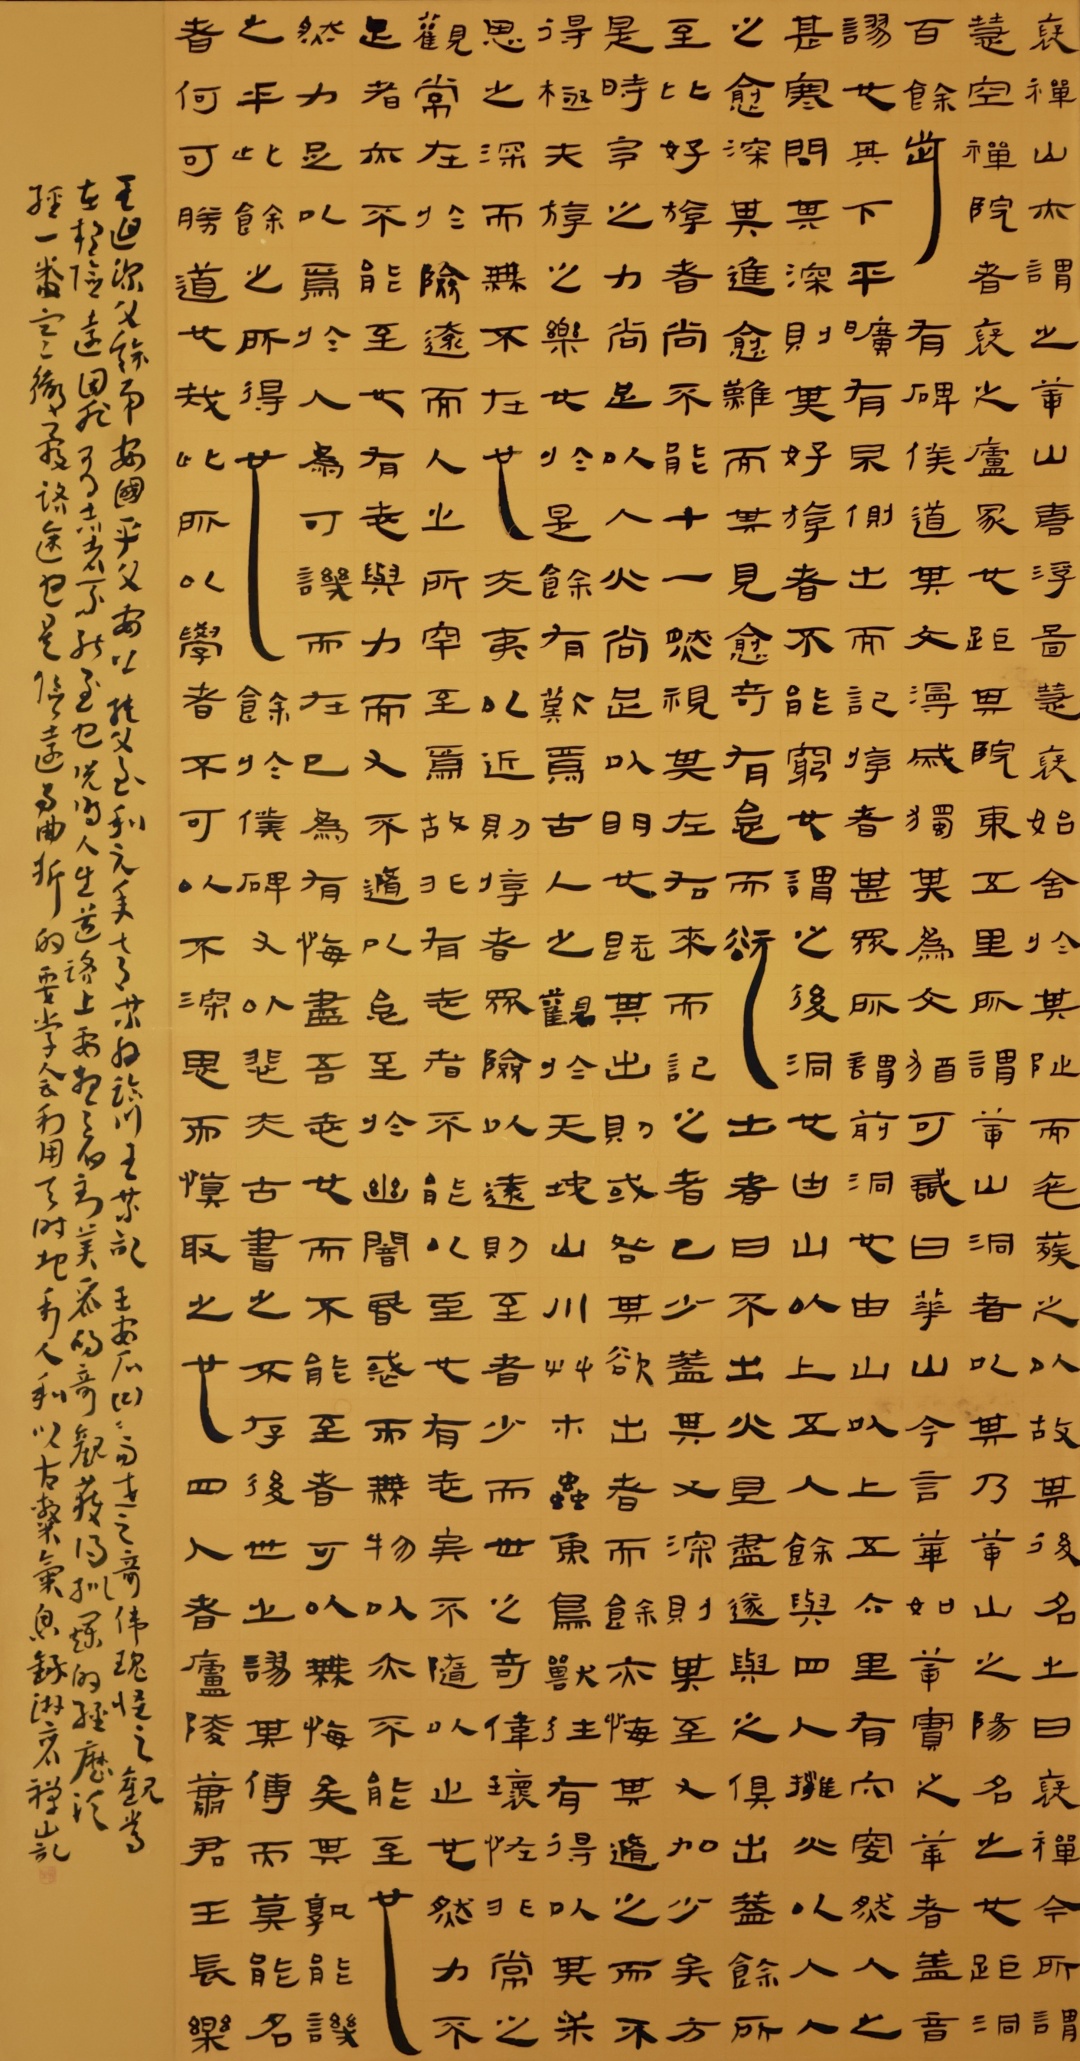 褒禪山亦謂之華山唐浮圖慧褒始舍於其阯而卒葬之以故其後名之曰褒禪今所謂
慧空禪院者褒之廬冢也距其院東五里所謂華山洞者以其乃華山之陽名之也距洞
百餘步有碑僕道其文漫滅獨其為文猶可識曰華山今言華如華實之華者蓋音
謬也其下平曠有泉側出而記遊者甚眾所謂前洞也由山以上五六里有穴窈然入之
甚寒問其深則其好遊者不能窮也謂之後洞也由山以上五人餘與四人擁火以入入
之愈深其進愈難而其見愈奇有怠而欲出者曰不出火且盡遂與之俱出蓋餘所
至比好遊者尚不能十一然視其左右來而記之者已少蓋其又深則其至又加少矣方
是時予之力尚足以入火尚足以明也既其出則或咎其欲出者而餘亦悔其隨之而不
得極夫遊之樂也於是餘有歎焉古人之觀於天地山川艸木蟲魚鳥獸往有得以其求
思之深而無不在也夫夷以近則遊者眾險以遠則至者少而世之奇偉瓌怪非常之
觀常在於險遠而人之所罕至焉故非有志者不能以至也有志矣不隨以止也然力不
足者亦不能至也有志與力而又不隨以怠至於幽闇昏惑而無物以亦不能至也
然力足以焉於人為可譏而在己為有悔盡吾志也而不能至者可以無悔矣其孰能譏
之乎此餘之所得也餘於僕碑又以悲夫古書之不存後世之謬其傳而莫能名
者何可勝道也哉此所以學者不可以不深思而慎取之也四人者廬陵蕭君王長樂
王迴深父餘弟安國平父安上純父至和元年七月某日臨川王某記 王安石曰世之奇偉瑰怪之觀常
在於險遠因非有志者不能至也說明人生道路上要想看到美麗的奇觀獲得的經歷須
經一番路途也是險遠曲折的要學會利用天時地利人和以古氣息錄游褒禪山記